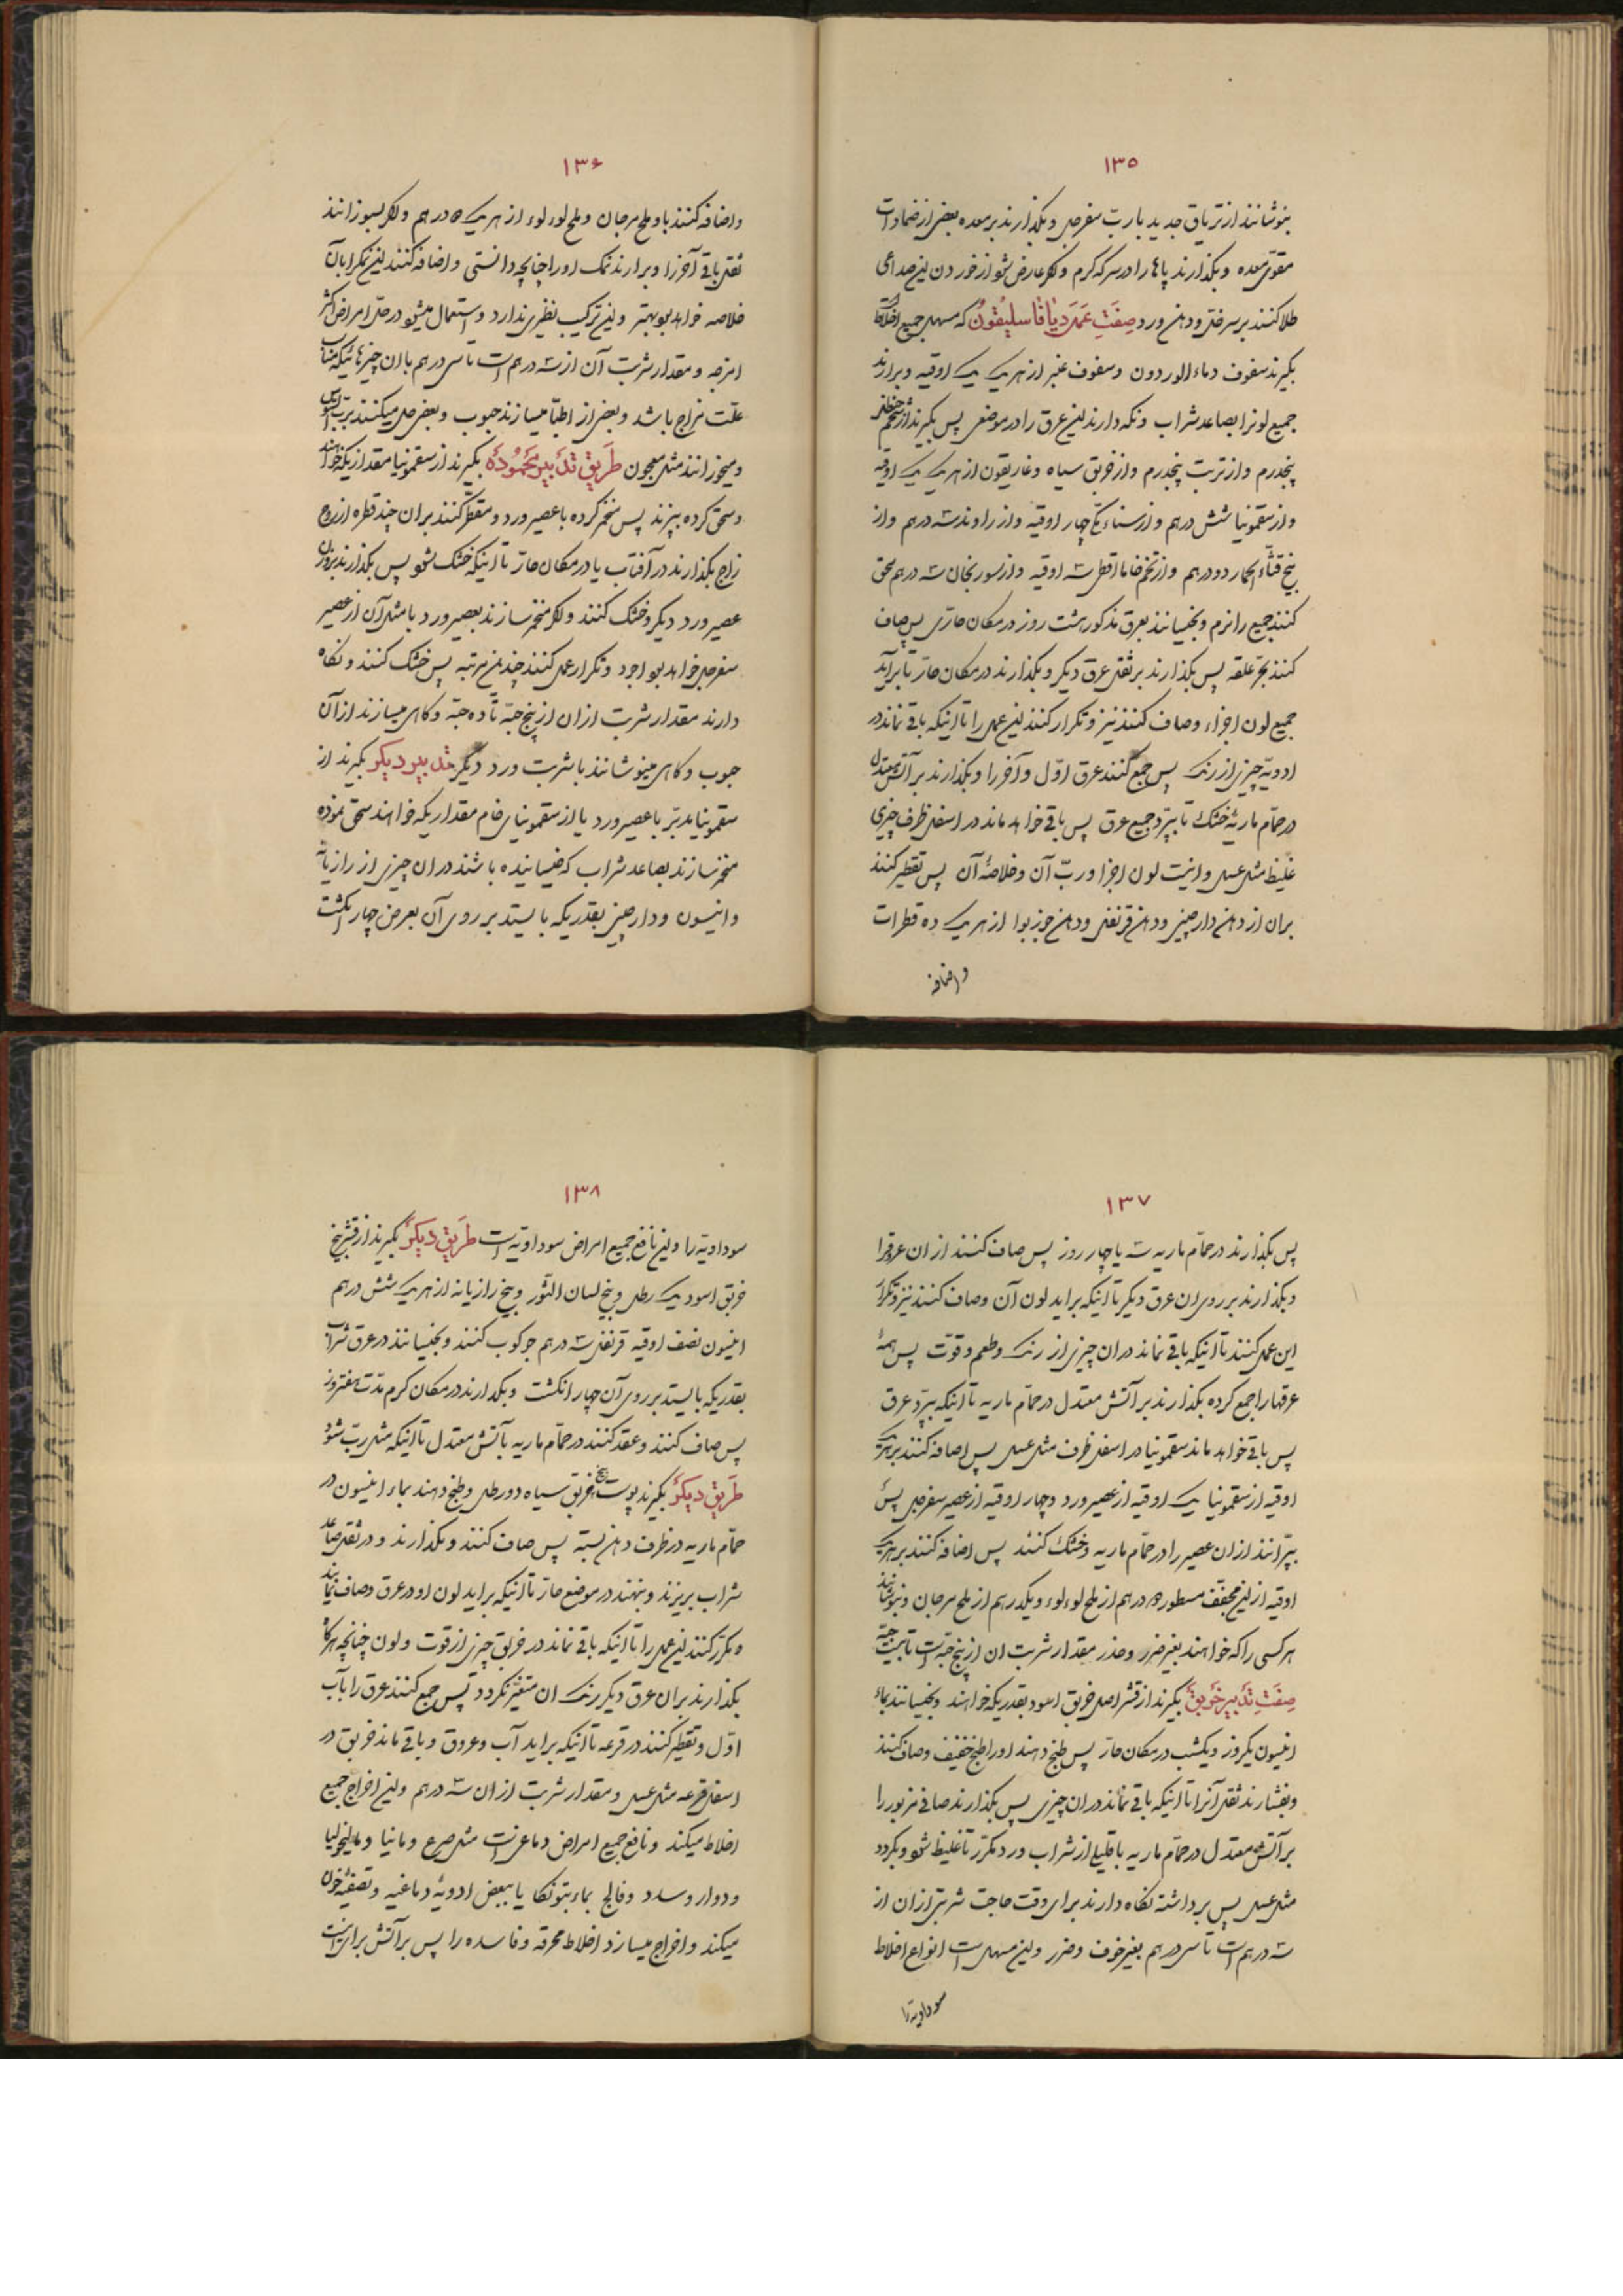 ۱۳۵
بنوشانند از تریاق جدید با ربّ سفرجل و بگذارند بر معده بعضی از ضمادات
مقوّی معده و بگذارند پاها را در سرکه کرم و اگر عارض شو از خوردن این صداعی
طلا کنند بر سر خلّ و دهن ورد صِفَتِ عَمَلِ دیاقاسلیقون که مسهل جمیع اخلاط
بگیرند سفوف دماء الوردون و سفوف غبر از هر یک یک اوقیه و برارند
جمیع لونرا بصاعد شراب و نگه دارند این عرق را در موضعی پس بگیرند از شحم حنظل
پنجدرم و از تربت پنجدرم و از خربق سیاه و غاریقون از هر یک یک اوقیه
و از سقمونیا شش درهم و از سناء مکّی چهار اوقیه و از راوند سه درهم و از
بیخ قثّاء الحمار دو درهم و از تخم خاماقطی سه اوقیه و از سورنجان سه درهم سحق
کنند جمیع را نرم و بخیسانند بعرق مذکور هشت روز در مکان حارّی پس صاف
کنند بجرّ علقه پس بگذارند بر ثفل عرق دیکر و بگذارند در مکان حارّ تا برآید
جمیع لون اجزاء و صاف کنند نیز و تکرار کنند این عمل را تا اینکه باقی نماند در
ادویه چیزی از رنک پس جمع کنند عرق اوّل و آخر را و بگذارند بر آتش معتدل
در حمّام ماریهٔ خشک تا بپرّد جمیع عرق پس باقی خواهد ماند در اسفل ظرف چیزی
غلیظ مثل عسل و اینست لون اجزا و ربّ آن و خلاصهٔ آن پس تقطیر کنند
بران از دهن دارچینی و دهن قرنفل و دهن جوز بوا از هر یک ده قطرات
و اضافه
۱۳۶
و اضافه کنند باو ملح مرجان و ملح لوءلوء از هر یک ۵ درهم و اگر بسوزانند
ثفل باقی آخر را و برارند نمک او را چنانچه دانستی و اضافه کنند این نمک را بان
خلاصه خواهد بود بهتر و این ترکیب نظیری ندارد و استعمال میشود در حلّ امراض اکثر
امزجه و مقدار شربت آن از سه درهم است تا سی درهم با ان چیزهائیکه مناسب
علّت مزاج باشد و بعضی از اطبّا میسازند حبوب و بعضی حل میکنند بربّ السوس
و میخورانند مثل معجون طَریقِ تَدْبیرِ مَحْمُودَه بگیرند از سقمونیا مقداریکه خواهند
و سحق کرده بپزند پس مخمّر کرده با عصیر ورد و مقطّر کنند بران چند قطره از روح
زاج بگذارند در آفتاب یا در مکان حارّ تا اینکه خشک شو پس بگذارند بر وی
عصیر ورد دیکر و خشک کنند و اگر مخمّر سازند بعصیر ورد با مثل آن از عصیر
سفرجل خواهد بود اجود و تکرار عمل کنند چندین مرتبه پس خشک کنند و نگاه
دارند مقدار شربت ازان از پنج حبّه تا ده حبّه و کاهی میسازند از آن
حبوب و کاهی مینوشانند با شربت ورد دیگر تدبیر دیکر بگیرند از
سقمونیا مدبّر با عصیر ورد یا از سقمونیای خام مقداریکه خواهند سحق نموده
مخمّر سازند بصاعد شراب که خیسانیده باشند در ان چیزی از رازیانه
و انیسون و دارچینی بقدریکه بایستد بر روی آن بعرض چهار انگشت
۱۳۷
پس بگذارند در حمّام ماریه سه یا چهار روز پس صاف کنند از ان عرق را
و بگذارند بر روی ان عرق دیگر تا اینکه براید لون آن و صاف کنند نیز و تکرار
این عمل کنند تا اینکه باقی نماند در ان چیزی از رنک و طعم و قوّت پس همهٔ
عرقها را جمع کرده بگذارند بر آتش معتدل در حمّام ماریه تا اینکه بپرّد عرق
پس باقی خواهد ماند سقمونیا در اسفل ظرف مثل عسل پس اضافه کنند بر هر یک
اوقیه از سقمونیا یک اوقیه از عصیر ورد و چهار اوقیه از عصیر سفرجل پس
بپرّانند از ان عصیر را در حمّام ماریه و خشک کنند پس اضافه کنند بر هر یک
اوقیه از این مجفّف مسطور ۵ درهم از ملح لوءلوء و یکدرهم از ملح مرجان و بنوشانند
هر کسی را که خواهند بغیر ضرر و حذر مقدار شربت ان از پنج حبّه است تا بیست حبّه
صِفَتِ تَدْبیرِ خَرْبَقْ بگیرند از قشر اصل خربق اسود بقدریکه خواهند و بخیسانند بماء
انیسون یکروز و یکشب در مکان حارّ پس طبخ دهند او را طبخ خفیف و صاف کنند
و بفشارند ثفل آنرا تا اینکه باقی نماند در ان چیزی پس بگذارند صافی مزبور را
بر آتش معتدل در حمّام ماریه با قلیلی از شراب ورد مکرّر تا غلیظ شو و بکردد
مثل عسل پس برداشته نگاه دارند برای وقت حاجت شربتی از ان از
سه درهم است تا سی درهم بغیر خوف و ضرر و این مسهل است انواع اخلاط
سوداویه را
۱۳۸
سوداویّه را و این نافع جمیع امراض سوداویّه است طَریقِ دیکَر بگیرند از قشر بیخ
خربق اسود یک رطل و بیخ لسان الثّور و بیخ رازیانه از هر یک شش درهم
انیسون نصف اوقیه قرنفل سه درهم جو کوب کنند و بخیسانند در عرق شراب
بقدریکه بایستد بر روی آن چهار انکشت و بگذارند در مکان کرم مدّت هفتروز
پس صاف کنند و عقد کنند در حمّام ماریه بآتش معتدل تا اینکه مثل ربّ شود
طَریقِ دیکَر بگیرند پوست بیخ خربق سیاه دو رطل و طبخ دهند بماء انیسون در
حمّام ماریه در ظرف دهن بسته پس صاف کنند و بگذارند و در ثفل صاعد
شراب بریزند و بنهند در موضع حارّ تا اینکه براید لون او در عرق و صاف نمایند
و مکرّر کنند این عمل را تا اینکه باقی نماند در خربق چیزی از قوّت و لون چنانچه هرگاه
بگذارند بر ان عرق دیگر رنک ان متغیّر نکردد پس جمع کنند عرق را بآب
اوّل و تقطیر کنند در قرعه تا اینکه براید آب و عروق و باقی ماند خربق در
اسفل قرعه مثل عسل و مقدار شربت از ان سه درهم و این اخراج جمیع
اخلاط میکند و نافع جمیع امراض دماغیست مثل صرع و مانیا و مالیخولیا
و دوار و سدد و فالج بماء بتونکا یا ببعض ادویهٔ دماغیه و تصفیهٔ خون
میکند و اخراج میسازد اخلاط محرقه و فاسده را پس بر آتش برای اینست